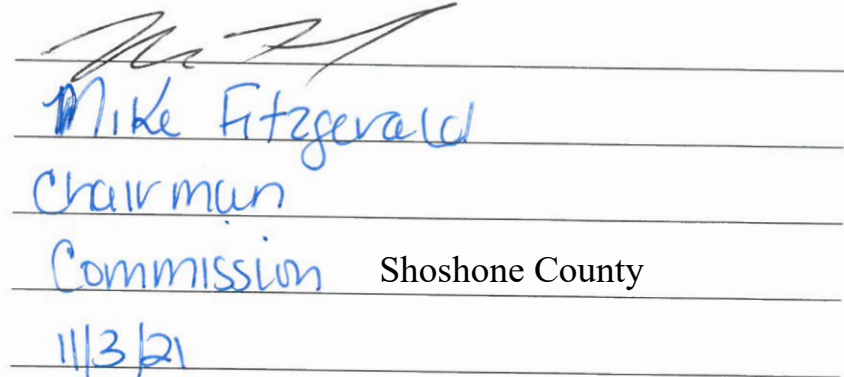 Mike Fitzgerald
Chairman
Commission Shoshone County
11/3/21